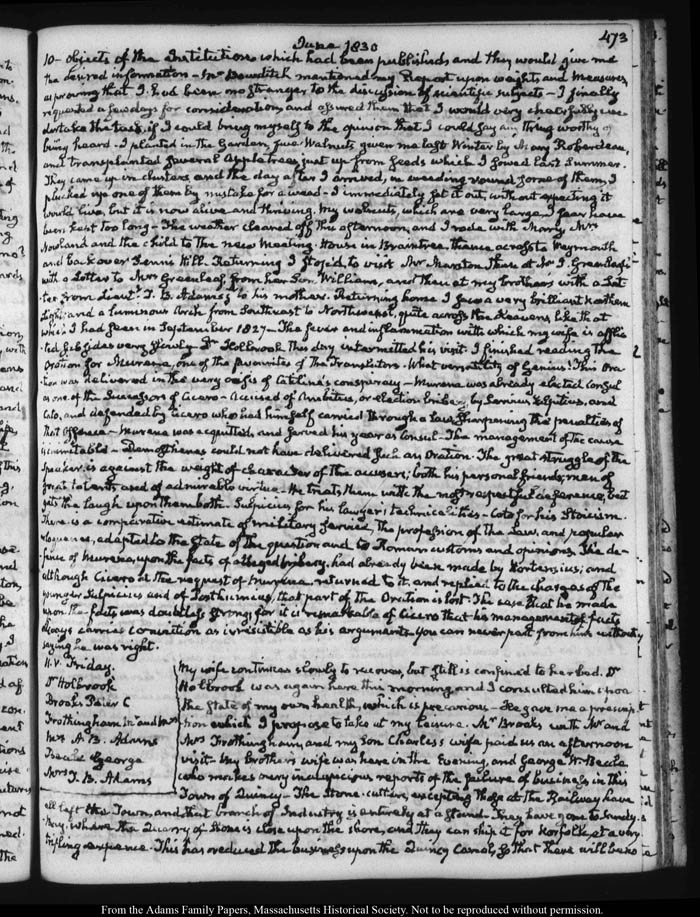 June 1830
473
10- objects of the Institution which had been published, and they would give me
the desired information - Mr Bowditch mentioned my Report upon weights and measures,
as proving that I had been no stranger to the discussion of scientific subjects - I finally
requested a few days for consideration, and assured them that I would very cheerfully un-
dertake the task, if I could bring myself to the opinion that I could say any thing worthy of
being heard - I planted in the Garden, five Walnuts given me last Winter by Mary Roberdeau,
and transplanted several Apple trees, just up from seeds which I sowed last Summer.
They came up in clusters, and the day after I arrived, in weeding round some of them, I
plucked up one of them by mistake for a weed - I immediately set it out, without expecting it
would live, but it is now alive and thriving. My walnuts, which are very large, I fear have
been kept too long - The weather cleared off this afternoon, and I rode with Mary, Mrs
Nowland and the child to the new Meeting-House in Braintree, thence across to Weymouth
and back over Penn's Hill. Returning I stop'd, to visit Mrs Marston there at Mr D. Greenleaf's
with a Letter to Mrs Greenleaf, from her Son William, and then at my brother's with a Let-
ter from Lieutt. T. B. Adams to his mother. Returning home I saw a very brilliant northern
Light; and a luminous Arch from Southeast to Northwest, quite across the Heavens like that
which I had seen in September 1827 - The fever and inflammation with which my wife is afflic-
ted subsides very slowly. Dr Holbrook this day intermitted his visit. I finished reading the
Oration for Murena, one of the favourites of the Translators. What versatility of Genius! This Ora-
tion was delivered in the very crisis of Catiline's conspiracy - Murena was already elected consul
as one of the Successors of Cicero - Accused of Ambitus, or election bribery, by Servius Sulpitius, and
Cato, and defended by Cicero who had himself carried through a Law sharpening the penalties of
that Offence - Murena was acquitted, and served his year as Consul - The management of the cause
is inimitable - Demosthenes could not have delivered such an Oration - The great struggle of the
Speaker is against the weight of character of the accusers; both his personal friends; men of
great talents and of admirable virtue - He treats them with the most respectful deference, but
gets the laugh upon them both - Sulpicius for his lawyer's technicalities - Cato for his Stoicism.
There is a comparative estimate of military service, the profession of the Law, and popular
eloquence, adapted to the state of the question and to Roman customs and opinions. The de-
fence of Murena, upon the facts of alleged bribery, had already been made by Hortensius; and
although Cicero at the request of Murena, returned to it, and replied to the charges of the
younger Sulpicius and of Posthumius, that part of the Oration is lost. The case that he made
upon the facts was doubtless strong; for it is remarkable of Cicero that his management of facts
always carries conviction as irresistible as his arguments. You can never part from him without
saying he was right.
11. V. Friday.
Dr Holbrook
Brooks Peter C
Frothingham Mr and Mrs
Mrs A. B. Adams
Beale George
Mrs T. B. Adams
My wife continues slowly to recover, but still is confined to her bed. Dr
Holbrook was again here this morning, and I consulted him upon
the state of my own health, which is precarious - He gave me a prescrip-
tion which I propose to take at my leisure. Mr Brooks with Mr and
Mrs Frothingham, and my Son Charles's wife paid us an afternoon
visit - My brother's wife was here in the Evening, and George W. Beale
who makes very inauspicious reports of the failure of business in this
Town of Quincy - The stone-cutters, excepting those at the Railway have
all left the Town, and that branch of Industry is entirely at a stand. They have gone to Sandy-
Bay, where the Quarry of Stone is close upon the shore, and they can ship it for Norfolk, at a very
trifling expence - This has reduced the business upon the Quincy Canal, so that there will be no
From the Adams Family Papers, Massachusetts Historical Society. Not to be reproduced without permission.